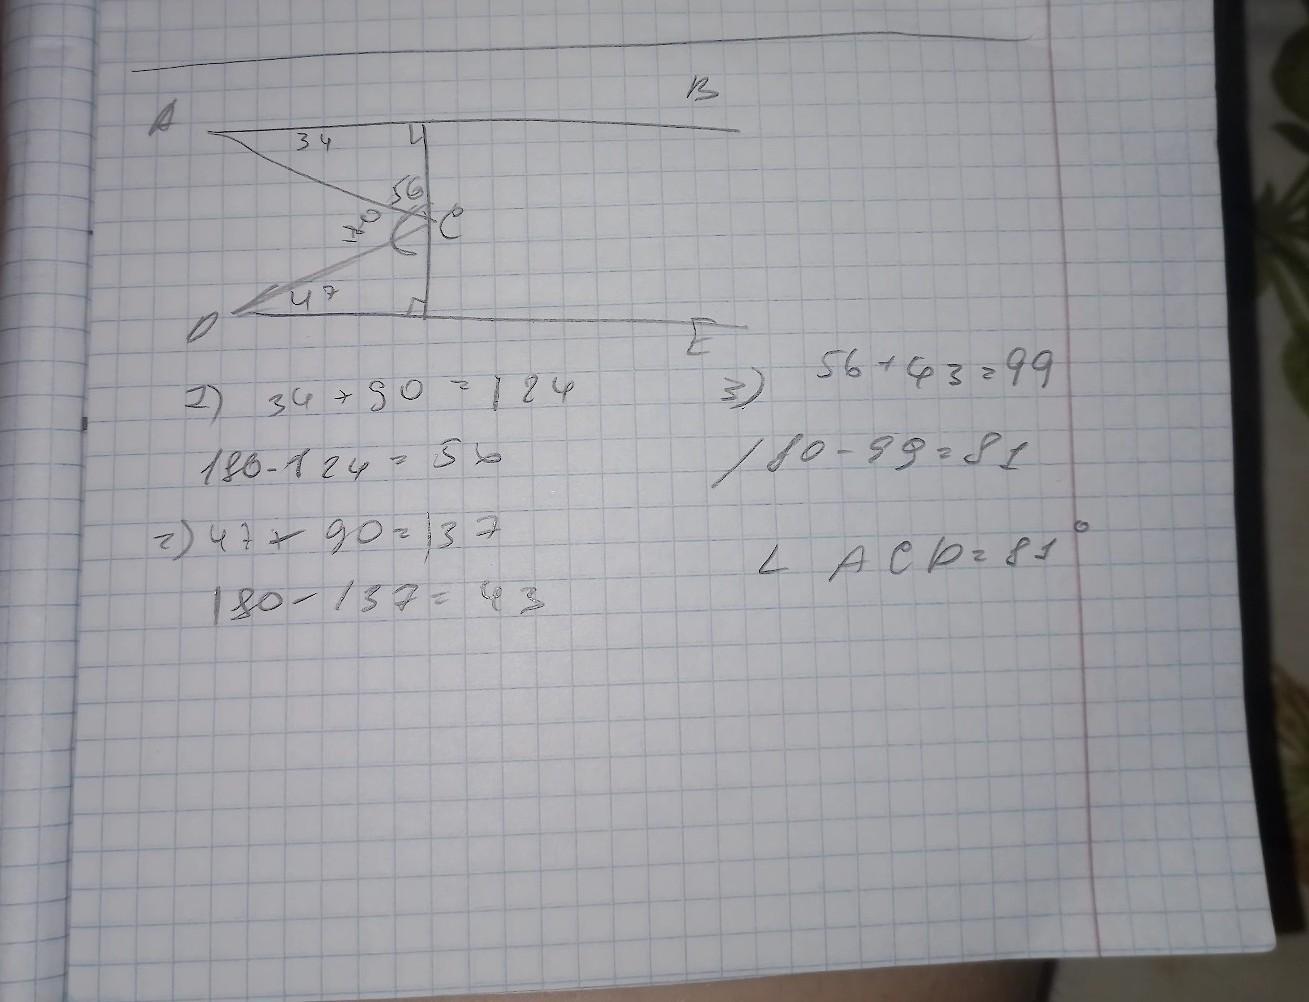 B
A
34
56
C
47
D
E
1) 34 + 90 = 124
180 - 124 = 56
2) 47 + 90 = 137
180 - 137 = 43
3) 56 + 43 = 99
180 - 99 = 81
∠ ACD = 81°